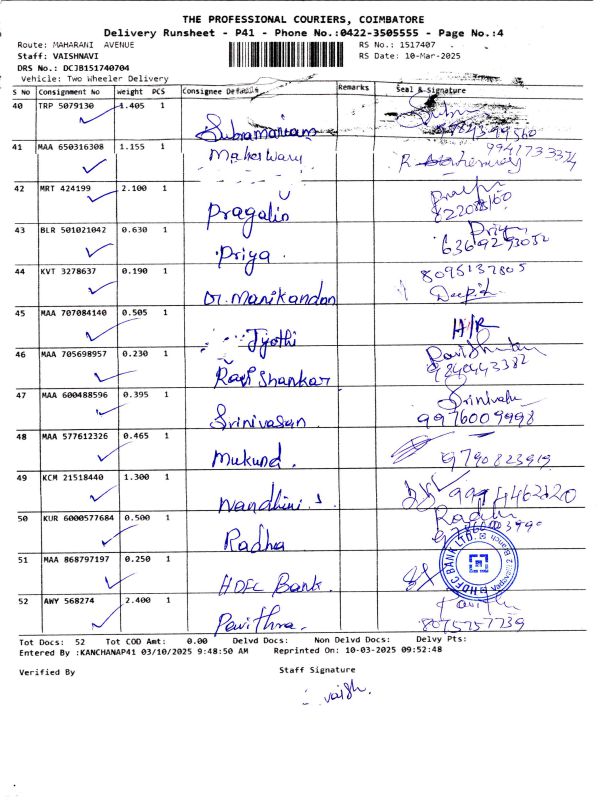 THE PROFESSIONAL COURIERS, COIMBATORE
Delivery Runsheet - P41 - Phone No.:0422-3505555 - Page No.:4
Route: MAHARANI AVENUE RS No.: 1517407
Staff: VAISHNAVI RS Date: 10-Mar-2025
DRS No.: DCJB151740704
Vehicle: Two Wheeler Delivery
S No Consignment No Weight PCS Consignee Details Remarks Seal & Signature
40 TRP 5079130 1.405 1 Subramaniam
41 MAA 650316308 1.155 1 Maheswary
42 MRT 424199 2.100 1 Pragalin
43 BLR 501021042 0.630 1 Priya Priya
44 KVT 3278637 0.190 1 Dr. Manikandan 8095137805 Deepik
45 MAA 707084140 0.505 1 Jyothi H/R
46 MAA 705698957 0.230 1 Ravi Shankar 9840443382
47 MAA 600488596 0.395 1 Srinivasan 9976009998
48 MAA 577612326 0.465 1 Mukund. 9790823919
49 KCM 21518440 1.300 1 Nandhini
50 KUR 6000577684 0.500 1 Radha
51 MAA 868797197 0.250 1 HDFC Bank. HDFC BANK LTD.
52 AWY 568274 2.400 1 Pavithra. 8075757739
Tot Docs: 52 Tot COD Amt: 0.00 Delvd Docs: Non Delvd Docs: Delvy Pts:
Entered By :KANCHANAP41 03/10/2025 9:48:50 AM Reprinted On: 10-03-2025 09:52:48
Verified By Staff Signature
vaish.